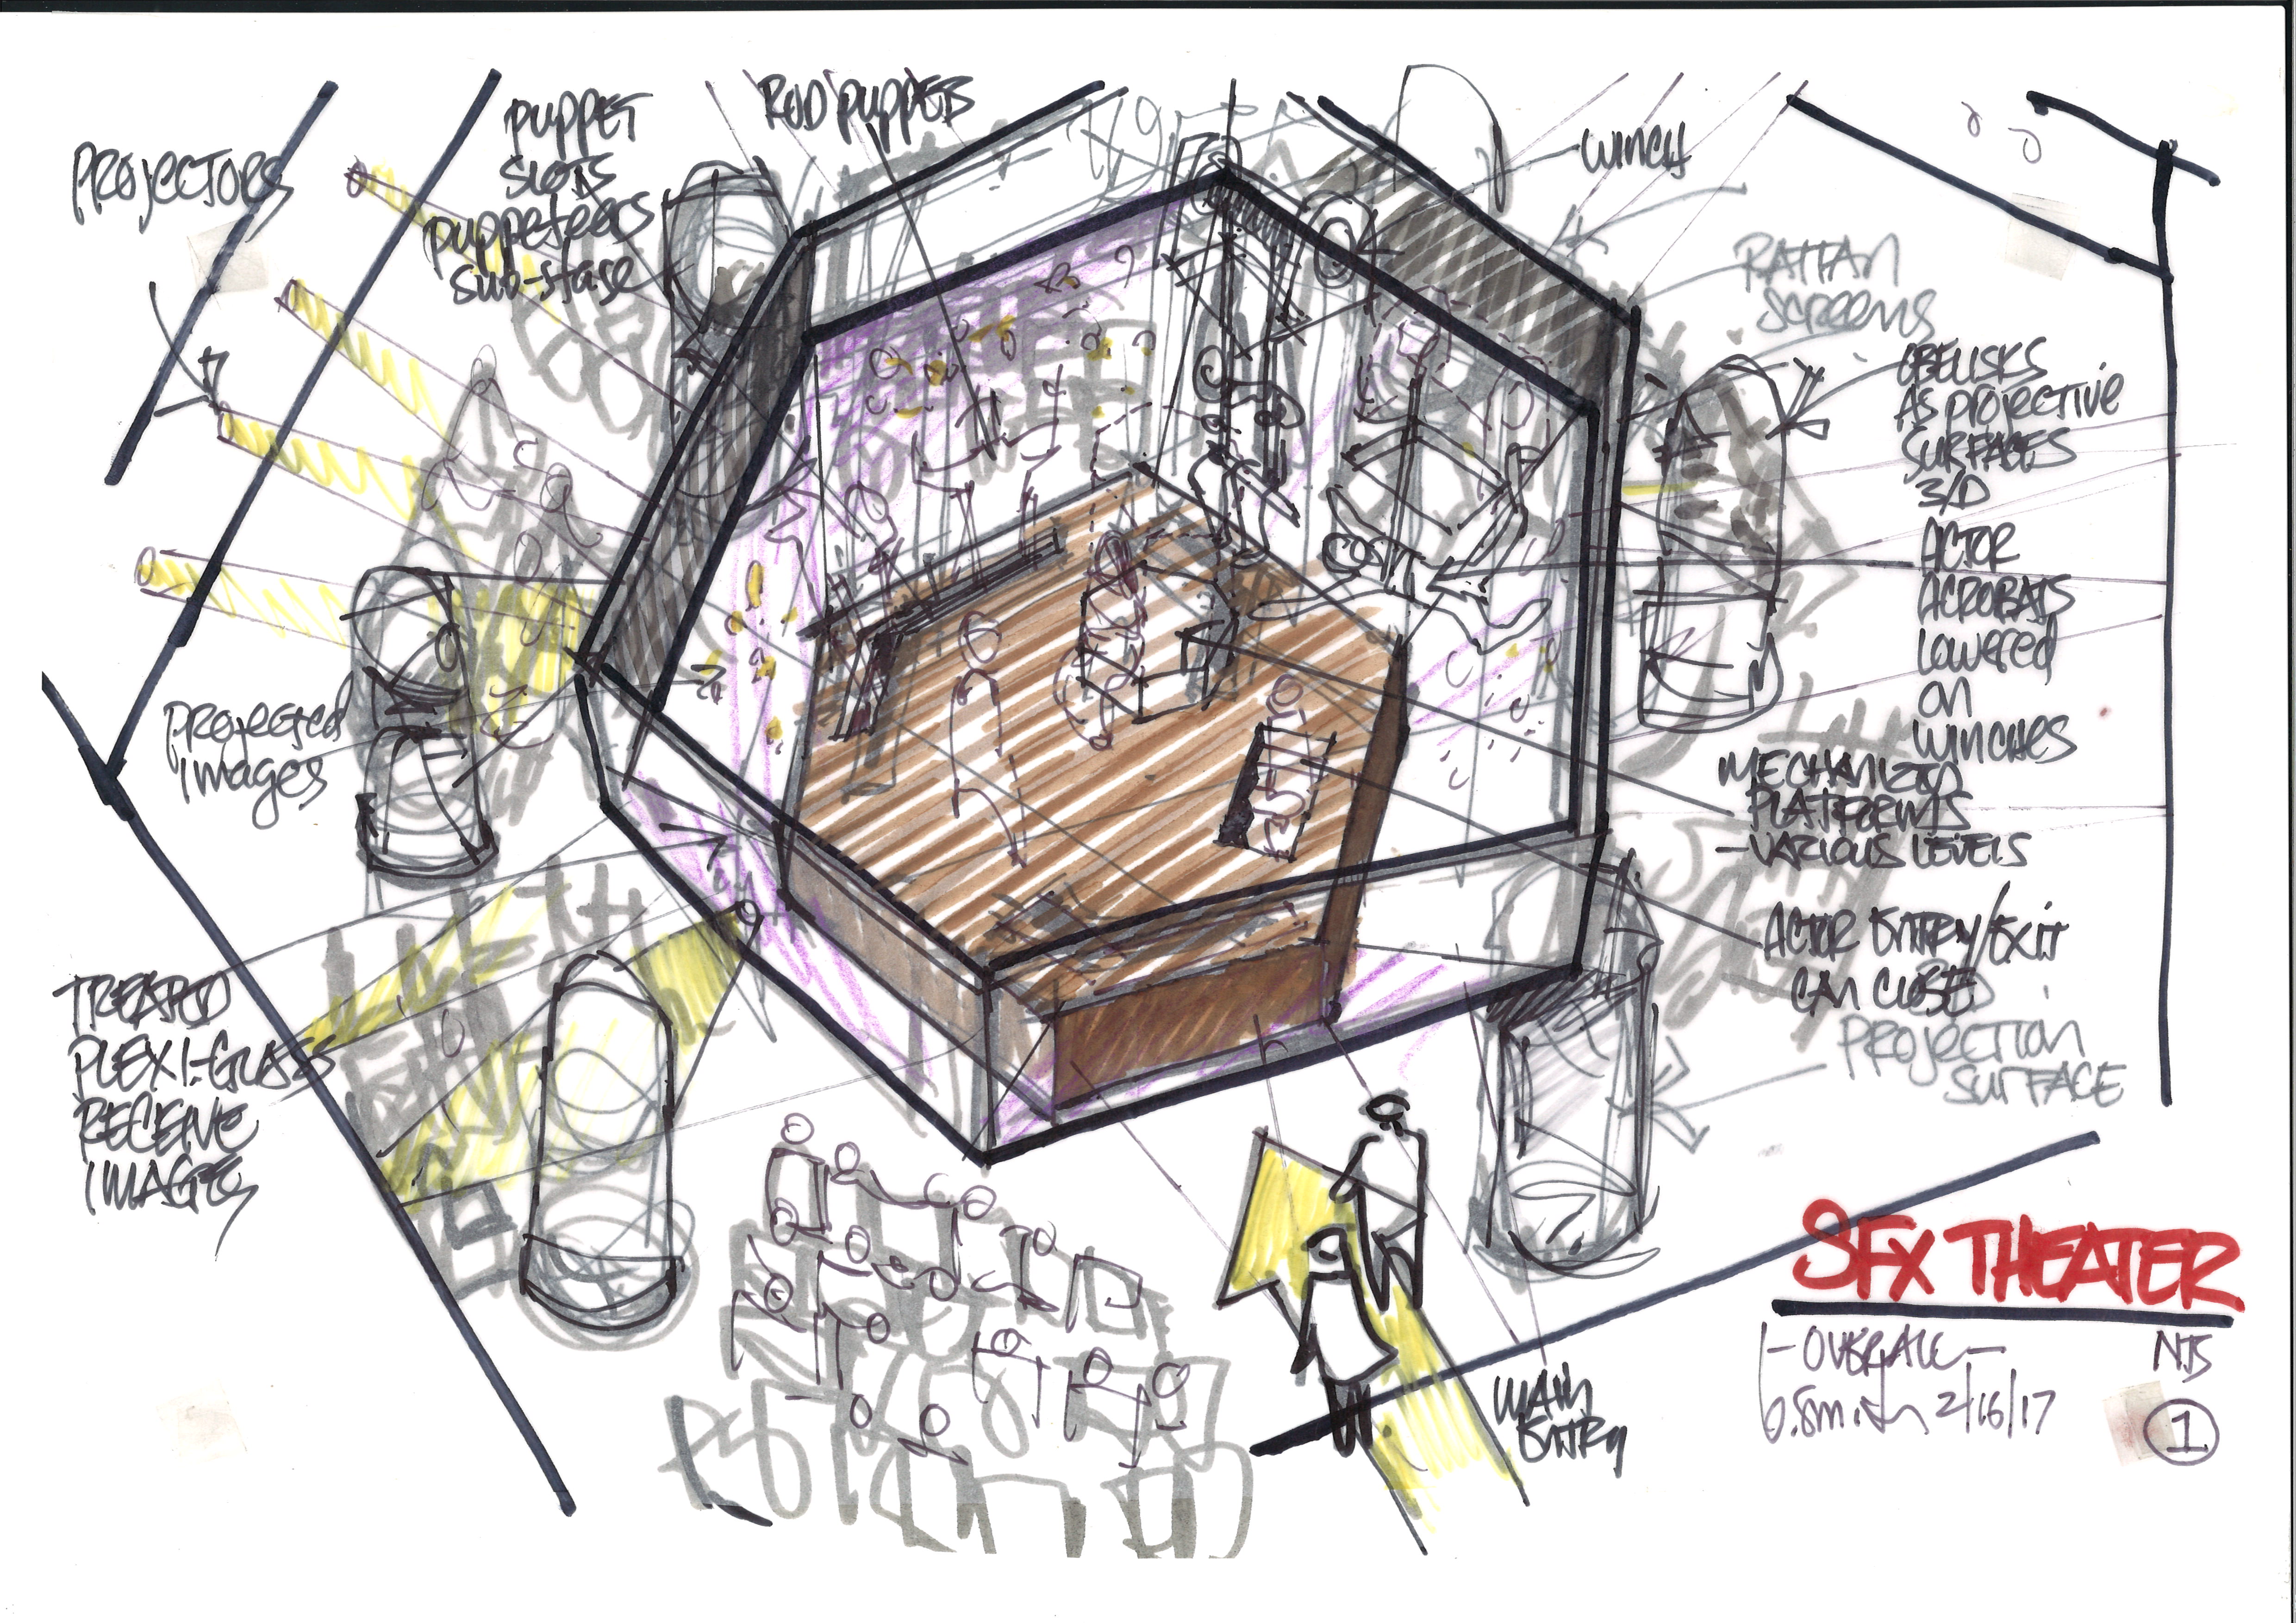 PROJECTORS
PUPPET
SLOTS
PUPPETEERS
SUB-STAGE
ROD PUPPETS
WINCH
RATTAN
SCREENS
OBELISKS
AS PROJECTIVE
SURFACES
3/D
ACTOR
ACROBATS
LOWERED
ON
WINCHES
MECHANIZED
PLATFORMS
-VARIOUS LEVELS
ACTOR ENTRY/EXIT
CAN CLOSE
PROJECTION
SURFACE
PROJECTED
IMAGES
TREATED
PLEXI-GLASS
RECEIVE
IMAGES
MAIN
ENTRY
SFX THEATER
-OVERALL- NTS
Smith 2/16/17
1